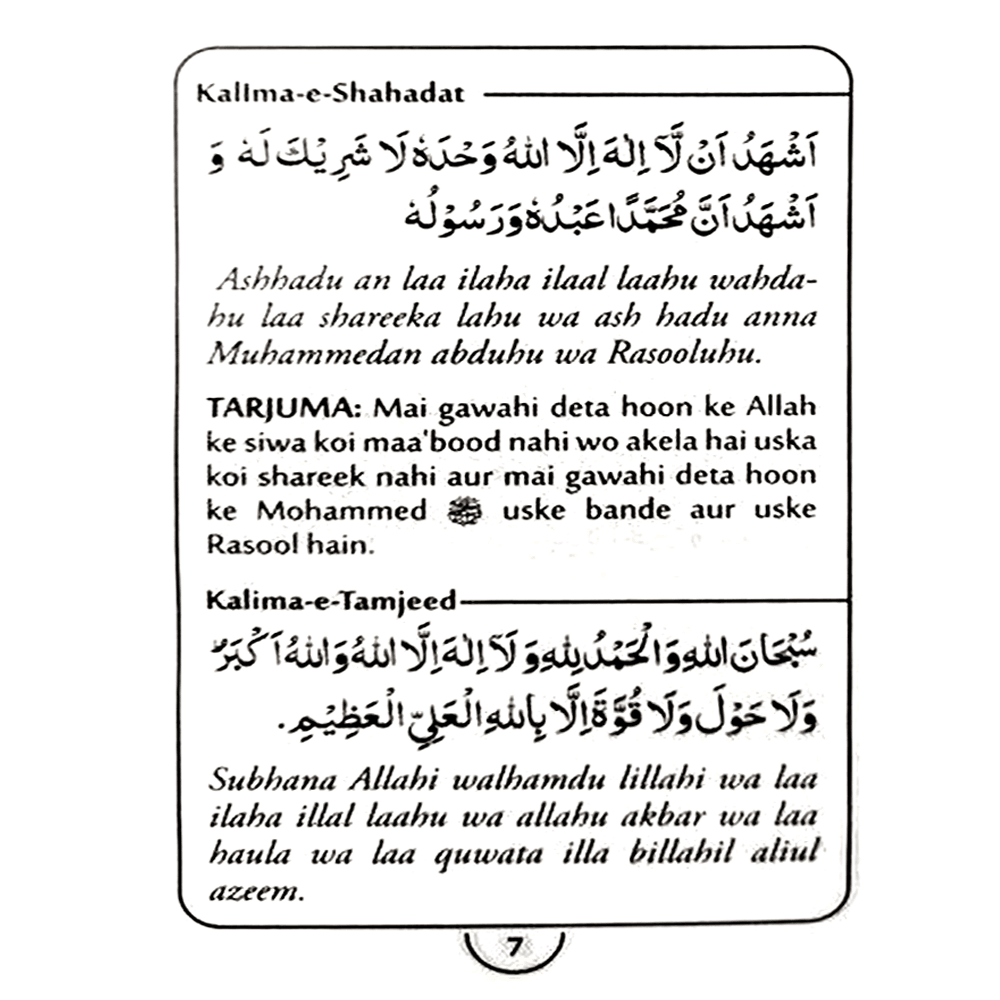 Kalima-e-Shahadat
اَشْهَدُ اَنْ لَّآ اِلٰهَ اِلَّا اللهُ وَحْدَهٗ لَا شَرِيْكَ لَهٗ وَ
اَشْهَدُ اَنَّ مُحَمَّدًا عَبْدُهٗ وَرَسُوْلُهٗ
Ashhadu an laa ilaha ilaal laahu wahda-
hu laa shareeka lahu wa ash hadu anna
Muhammedan abduhu wa Rasooluhu.
TARJUMA: Mai gawahi deta hoon ke Allah
ke siwa koi maa'bood nahi wo akela hai uska
koi shareek nahi aur mai gawahi deta hoon
ke Mohammed ﷺ uske bande aur uske
Rasool hain.
Kalima-e-Tamjeed
سُبْحَانَ اللهِ وَالْحَمْدُ لِلهِ وَ لَآ اِلٰهَ اِلَّا اللهُ وَاللهُ اَكْبَرُ
وَلَا حَوْلَ وَلَا قُوَّةَ اِلَّا بِاللهِ الْعَلِيِّ الْعَظِيْمِ.
Subhana Allahi walhamdu lillahi wa laa
ilaha illal laahu wa allahu akbar wa laa
haula wa laa quwata illa billahil aliul
azeem.
7